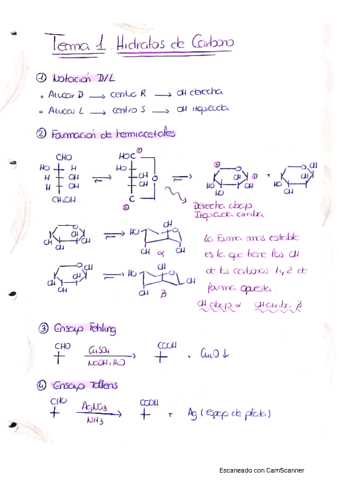 Tema 1 Hidratos de Carbono
① Notación D/L
• Azucar D → centro R → OH derecha
• Azucar L → centro S → OH izquierda
② Formación de hemiacetales
CHO
HO H
H OH
H OH
CH₂OH
Derecha abajo
Izquierda arriba
α
β
la forma mas estable
es la que tiene los OH
de los carbonos 1 y 2 de
forma opuesta
OH abajo α OH arriba β
③ Ensayo Fehling
CHO CuSO₄ COOH + CuO↓
NaOH, H₂O
④ Ensayo Tollens
CHO AgNO₃ COOH + Ag (espejo de plata)
NH₃
Escaneado con CamScanner